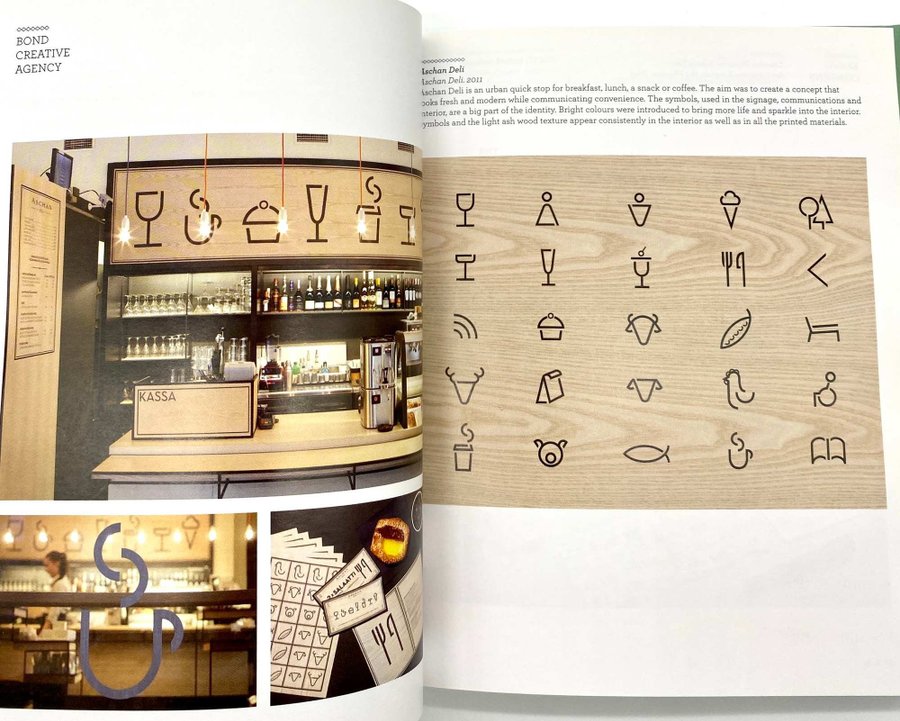 BOND
CREATIVE
AGENCY
Aschan Deli
Aschan Deli. 2011
Aschan Deli is an urban quick stop for breakfast, lunch, a snack or coffee. The aim was to create a concept that
looks fresh and modern while communicating convenience. The symbols, used in the signage, communications and
interior, are a big part of the identity. Bright colours were introduced to bring more life and sparkle into the interior.
Symbols and the light ash wood texture appear consistently in the interior as well as in all the printed materials.
ASCHAN
KASSA
SALAATTI